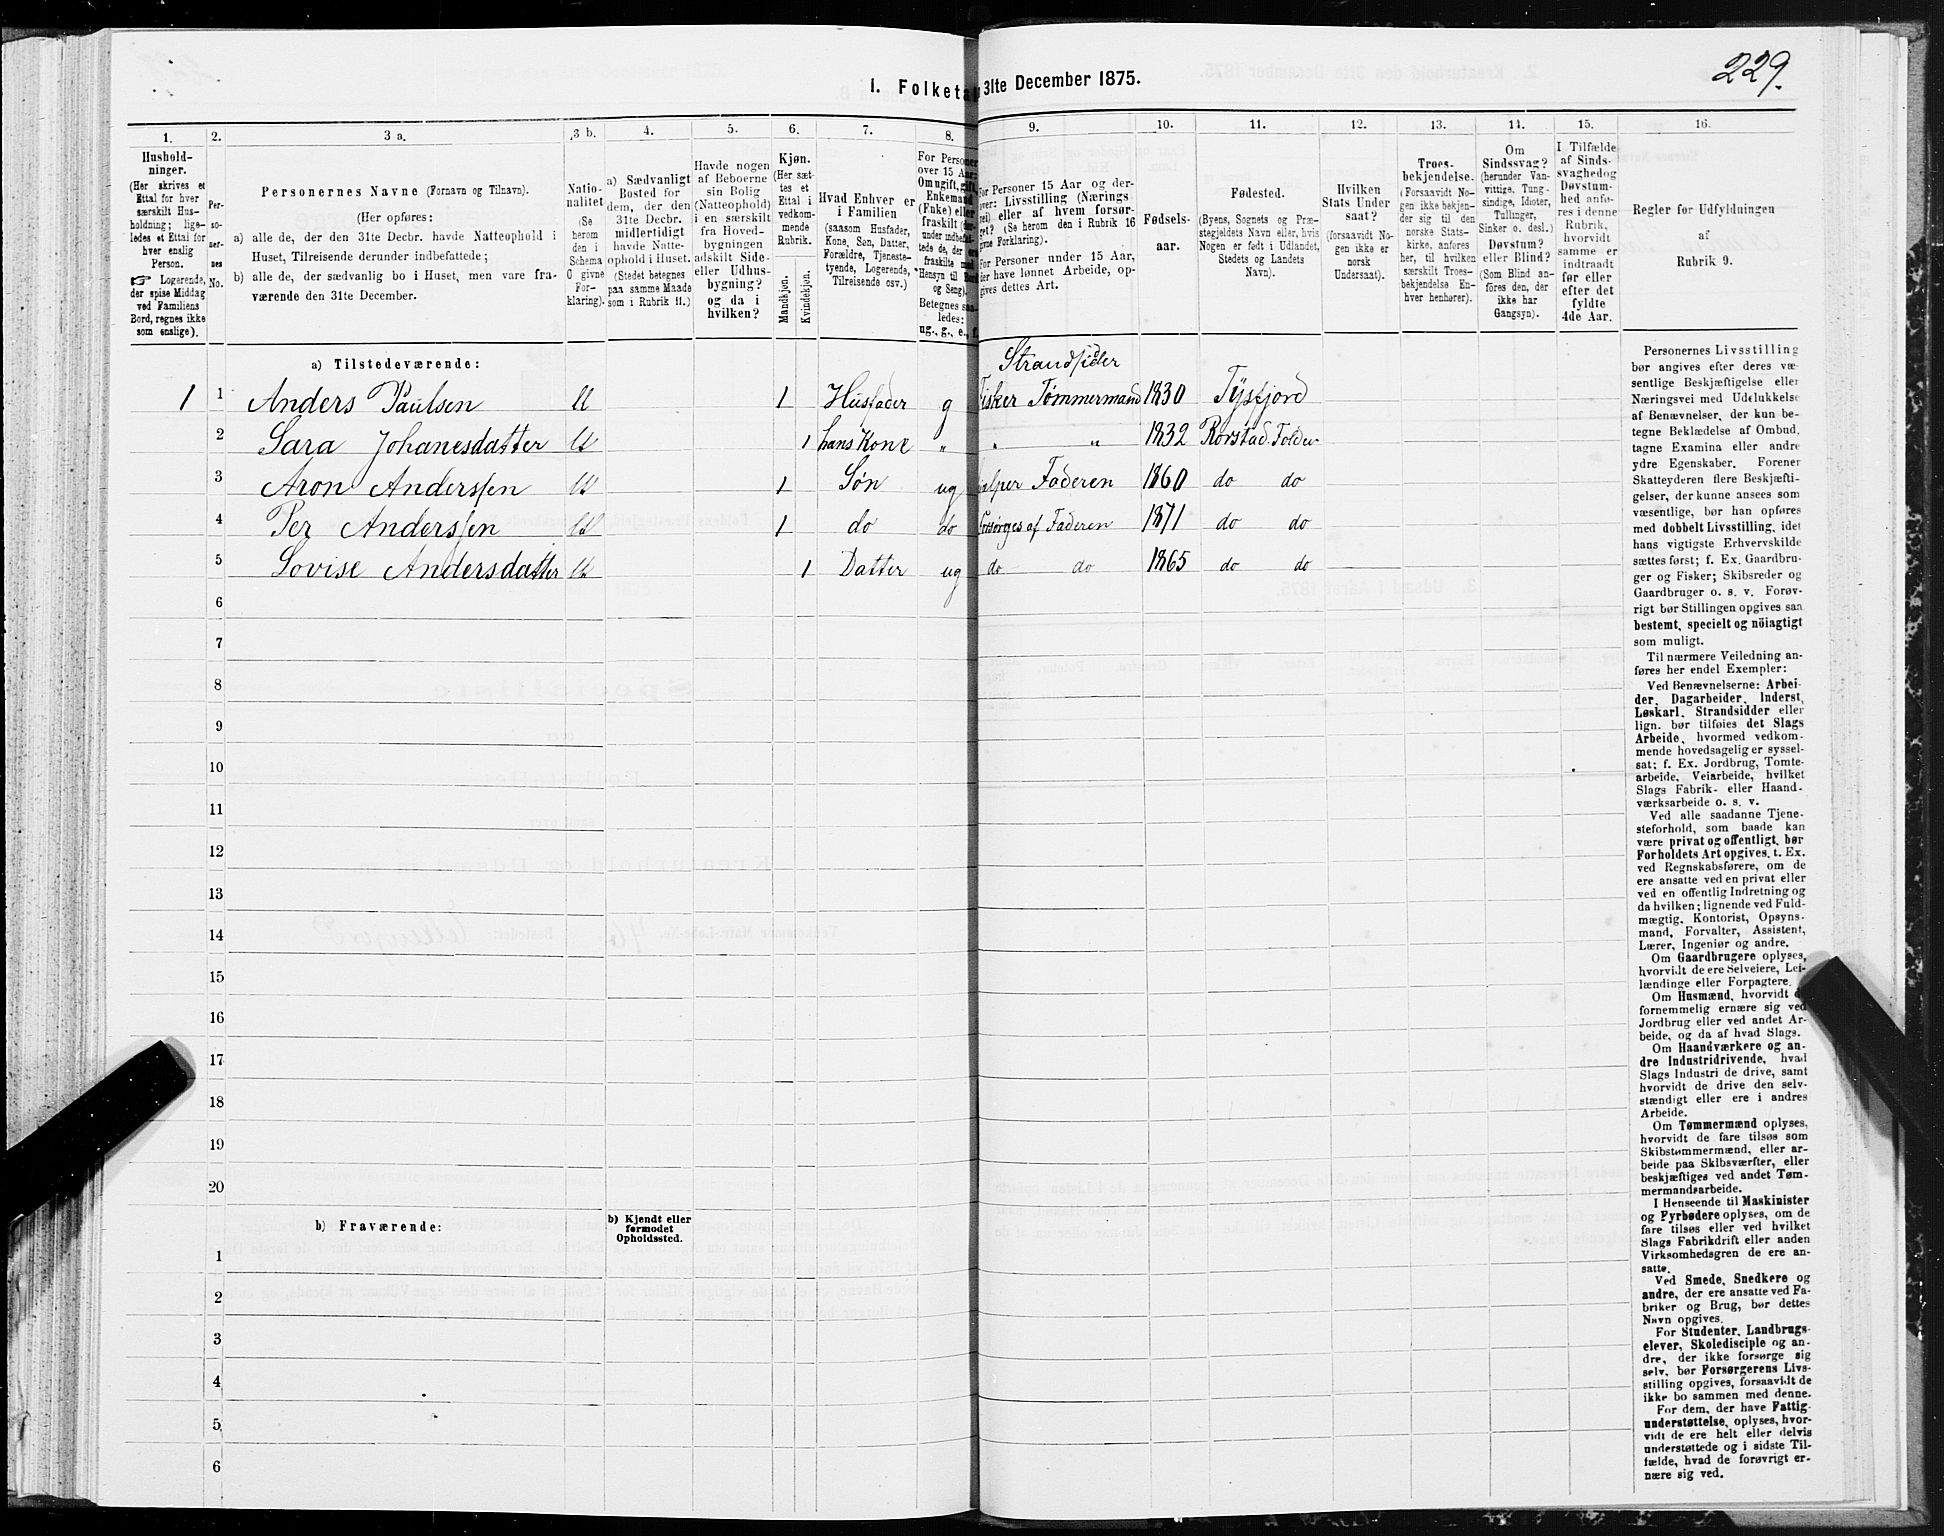 229.
1. Folketal 31te December 1875.
1. 2. 3 a. 3 b. 4. 5. 6. 7. 8. 9. 10. 11. 12. 13. 14. 15. 16.
Hushold-
ninger.
(Her skrives et
Ettal for hver
særskilt Hus-
holdning; lige-
ledes et Ettal for
hver enslig
Person.
☞ Logerende,
der spise Middag
ved Familiens
Bord, regnes ikke
som enslige).
Per-
so-
ner-
nes
No.
Personernes Navne (Fornavn og Tilnavn).
(Her opføres:
a) alle de, der den 31te Decbr. havde Natteophold i
Huset, Tilreisende derunder indbefattede;
b) alle de, der sædvanlig bo i Huset, men vare fra-
værende den 31te December.
Natio-
nalitet
(Se
herom
den i
Schema
O givne
For-
klaring).
a) Sædvanligt
Bosted for
dem, der den
31te Decbr.
midlertidigt
havde Natte-
ophold i Huset.
(Stedet betegnes
paa samme Maade
som i Rubrik 11.)
Havde nogen
af Beboerne
sin Bolig
(Natteophold)
i en særskilt
fra Hoved-
bygningen
adskilt Side-
eller Udhus-
bygning?
og da i
hvilken?
Kjøn.
(Her sæt-
tes et
Ettal i
vedkom-
mende
Rubrik.
Mandkjøn.
Kvindekjøn.
Hvad Enhver er
i Familien
(saasom Husfader,
Kone, Søn, Datter,
Forældre, Tjeneste-
tyende, Logerende,
Tilreisende osv.)
For Personer
over 15 Aar:
Om ugift, gift,
Enkemand
(Enke) eller
fraskilt
fraskilte med
Hensyn til Bord
og Seng).
Betegnes saa-
ledes:
ug., g., e., f.
For Personer 15 Aar og der-
over: Livsstilling (Nærings-
vei) eller af hvem forsør-
get? (Se herom den i Rubrik 16
givne Forklaring).
For Personer under 15 Aar,
der have lønnet Arbeide, op-
gives dettes Art.
Fødsels-
aar.
Fødested.
(Byens, Sognets og Præ-
stegjeldets Navn eller, hvis
Nogen er født i Udlandet,
Stedets og Landets
Navn).
Hvilken
Stats Under
saat?
(forsaavidt No-
gen ikke er
norsk
Undersaat).
Troes-
bekjendelse.
(Forsaavidt No-
gen ikke bekjen-
der sig til den
norske Stats-
kirke, anføres
her, til hvilken
særskilt Troes-
bekjendelse En-
hver henhører).
Om
Sindssvag?
(herunder Van-
vittige, Tung-
sindige, Idioter,
Tullinger,
Sinker o. desl.)
Døvstum?
eller Blind?
(Som Blind an-
føres den, der
ikke har
Gangsyn).
I Tilfælde
af Sinds-
svaghed og
Døvstum-
hed anfø-
res i denne
Rubrik,
hvorvidt
samme er
indtraadt
før eller
efter det
fyldte
4de Aar.
Regler for Udfyldningen
af
Rubrik 9.
a) Tilstedeværende:
Strandsider
1 1 Anders Paulsen U 1 Husfader g Fisker Tømmermand 1830 Tysfjord
2 Sara Johanesdatter U 1 hans Kone " " " 1832 Rørstad Folden
3 Aron Anderssen U 1 Søn ug hjelper Faderen 1860 do do
4 Per Anderssen U 1 do do Forsørges af Faderen 1871 do do
5 Lovise Andersdatter U 1 Datter ug do do 1865 do do
6
7
8
9
10
11
12
13
14
15
16
17
18
19
20
b) Fraværende:
b) Kjendt eller
formodet
Opholdssted.
1
2
3
4
5
6
Personernes Livsstilling
bør angives efter deres væ-
sentlige Beskjæftigelse eller
Næringsvei med Udelukkelse
af Benævnelser, der kun be-
tegne Beklædelse af Ombud,
tagne Examina eller andre
ydre Egenskaber. Forener
Skatteyderen flere Beskjæfti-
gelser, der kunne ansees som
væsentlige, bør han opføres
med dobbelt Livsstilling, idet
hans vigtigste Erhvervskilde
sættes først; f. Ex. Gaardbru-
ger og Fisker; Skibsreder og
Gaardbruger o. s. v. Forøv-
rigt bør Stillingen opgives saa
bestemt, specielt og nöiagtigt
som muligt.
Til nærmere Veiledning an-
føres her endel Exempler:
Ved Benævnelserne: Arbei-
der, Dagarbeider, Inderst,
Løskarl, Strandsidder eller
lign. bør tilføies det Slags
Arbeide, hvormed vedkom-
mende hovedsagelig er syssel-
sat; f. Ex. Jordbrug, Tomte-
arbeide, Veiarbeide, hvilket
Slags Fabrik- eller Haand-
værksarbeide o. s. v.
Ved alle saadanne Tjene-
steforhold, som baade kan
være privat og offentligt, bør
Forholdets Art opgives, t. Ex.
ved Regnskabsførere, om de
ere ansatte ved en privat eller
ved en offentlig Indretning og
da hvilken; lignende ved Fuld-
mægtig, Kontorist, Opsyns-
mand, Forvalter, Assistent,
Lærer, Ingeniør og andre.
Om Gaardbrugere oplyses,
hvorvidt de ere Selveiere, Lei-
lændinge eller Forpagtere.
Om Husmænd, hvorvidt de
fornemmelig ernære sig ved
Jordbrug eller ved andet Ar-
beide, og da af hvad Slags.
Om Haandværkere og an-
dre Industridrivende, hvad
Slags Industri de drive, samt
hvorvidt de drive den selv-
stændigt eller ere i andres
Arbeide.
Om Tømmermænd oplyses,
hvorvidt de fare tilsøs som
Skibstømmermænd, eller ar-
beide paa Skibsværfter, eller
beskjæftiges ved andet Tøm-
mermandsarbeide.
I Henseende til Maskinister
og Fyrbødere oplyses, om de
fare tilsøs eller ved hvilket
Slags Fabrikdrift eller anden
Virksomhedsgren de ere an-
satte.
Ved Smede, Snedkere og
andre, der ere ansatte ved Fa-
briker og Brug, bør dettes
Navn opgives.
For Studenter, Landbrugs-
elever, Skoledisciple og an-
dre, der ikke forsørge sig
selv, bør Forsørgerens Livs-
stilling opgives, forsaavidt de
ikke bo sammen med denne.
For dem, der have Fattig-
understøttelse, oplyses, hvor-
vidt de ere helt eller delvis
understøttede og i sidste Til-
fælde, hvad de forøvrigt er-
nære sig ved.